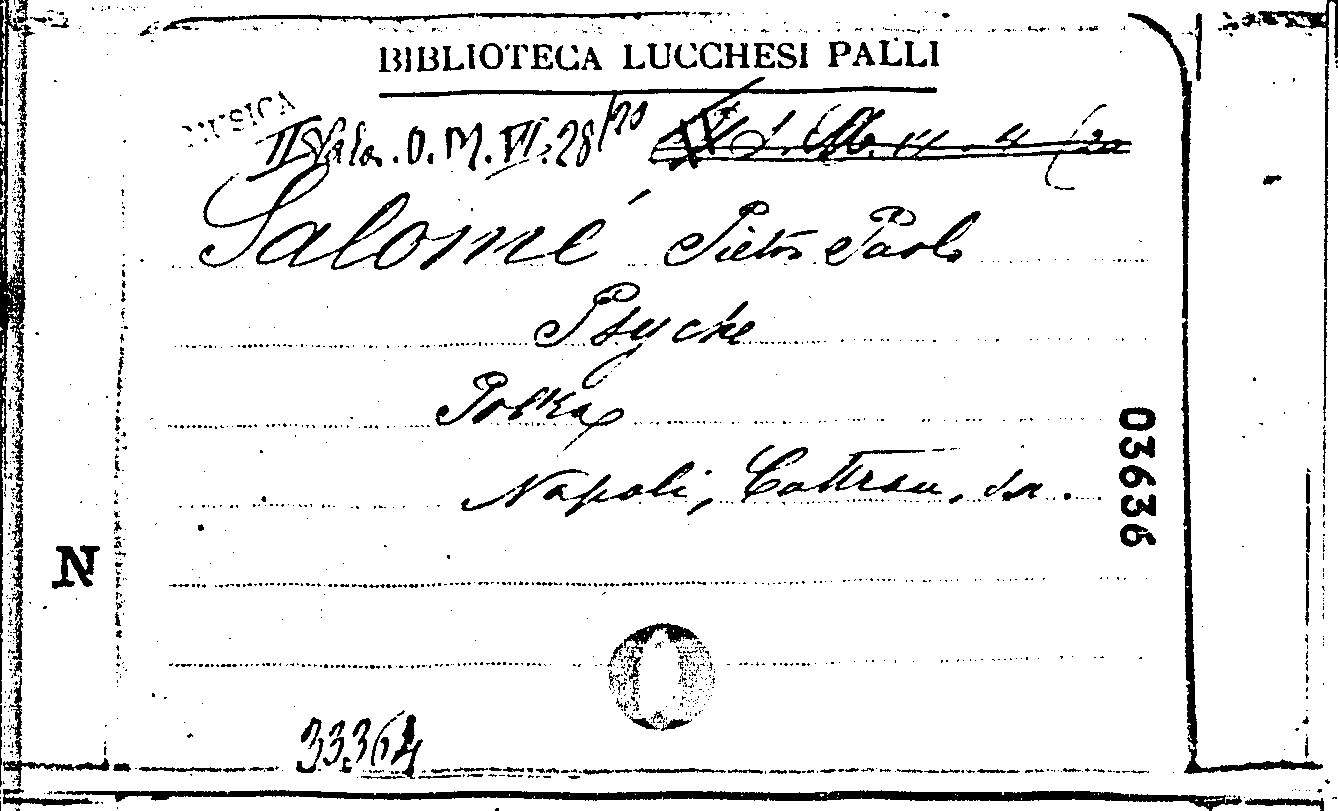 BIBLIOTECA LUCCHESI PALLI
MUSICA
II Sala. O. M. VI. 28/20
Salomé Pietro Paolo
Psyche
Polka
Napoli, Cottrau, sn.
03636
N
33364